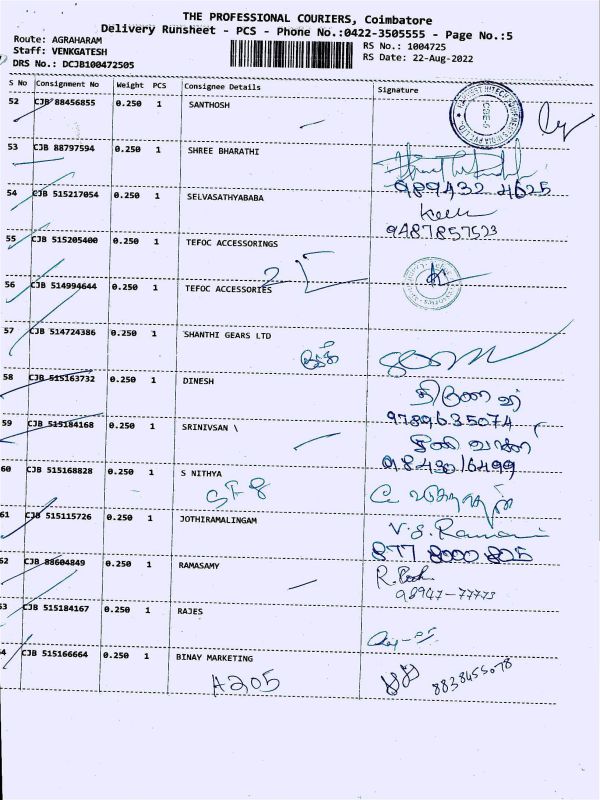 THE PROFESSIONAL COURIERS, Coimbatore
Delivery Runsheet - PCS - Phone No.:0422-3505555 - Page No.:5
Route: AGRAHARAM
RS No.: 1004725
Staff: VENKGATESH
RS Date: 22-Aug-2022
DRS No.: DCJB100472505
S No Consignment No Weight PCS Consignee Details Signature
52 CJB 88456855 0.250 1 SANTHOSH
53 CJB 88797594 0.250 1 SHREE BHARATHI
989432 4625
54 CJB 515217054 0.250 1 SELVASATHYABABA
9487857523
55 CJB 515205400 0.250 1 TEFOC ACCESSORINGS
2
56 CJB 514994644 0.250 1 TEFOC ACCESSORIES
57 CJB 514724386 0.250 1 SHANTHI GEARS LTD
58 CJB 515163732 0.250 1 DINESH
9789635074
59 CJB 515184168 0.250 1 SRINIVSAN \
60 CJB 515168828 0.250 1 S NITHYA
61 CJB 515115726 0.250 1 JOTHIRAMALINGAM
V.S. Ramani
877 8000 825
62 CJB 88604849 0.250 1 RAMASAMY
98947-77773
53 CJB 515184167 0.250 1 RAJES
54 CJB 515166664 0.250 1 BINAY MARKETING
A205
8838455078